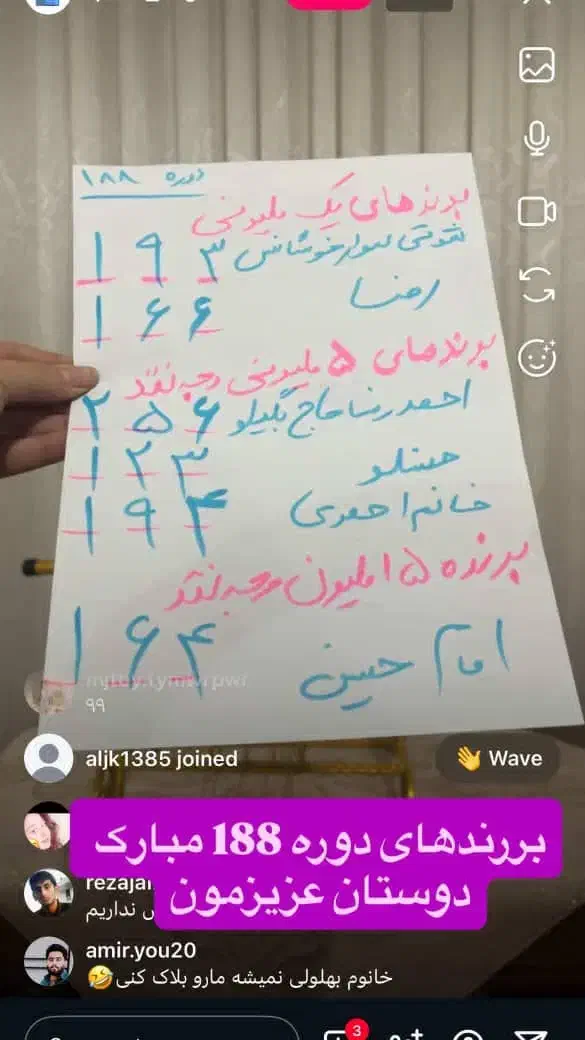 دوره ۱۸۸
برندهای یک میلیونی
۱۹۳
رضا
۱۶۶
برندهای ۵ میلیونی وجه نقد
احمدرضا حاج بگیلو ۲۵۶
حسنلو ۱۲۳
خانم احمدی ۱۹۴
برنده ۱۵ میلیون وجه نقد
امام حسین ۱۶۴
۹۹
aljk1385 joined
Wave
بررندهای دوره 188 مبارک
دوستان عزیزمون
نداریم
amir.you20
خانوم بهلولی نمیشه مارو بلاک کنی🤣
3